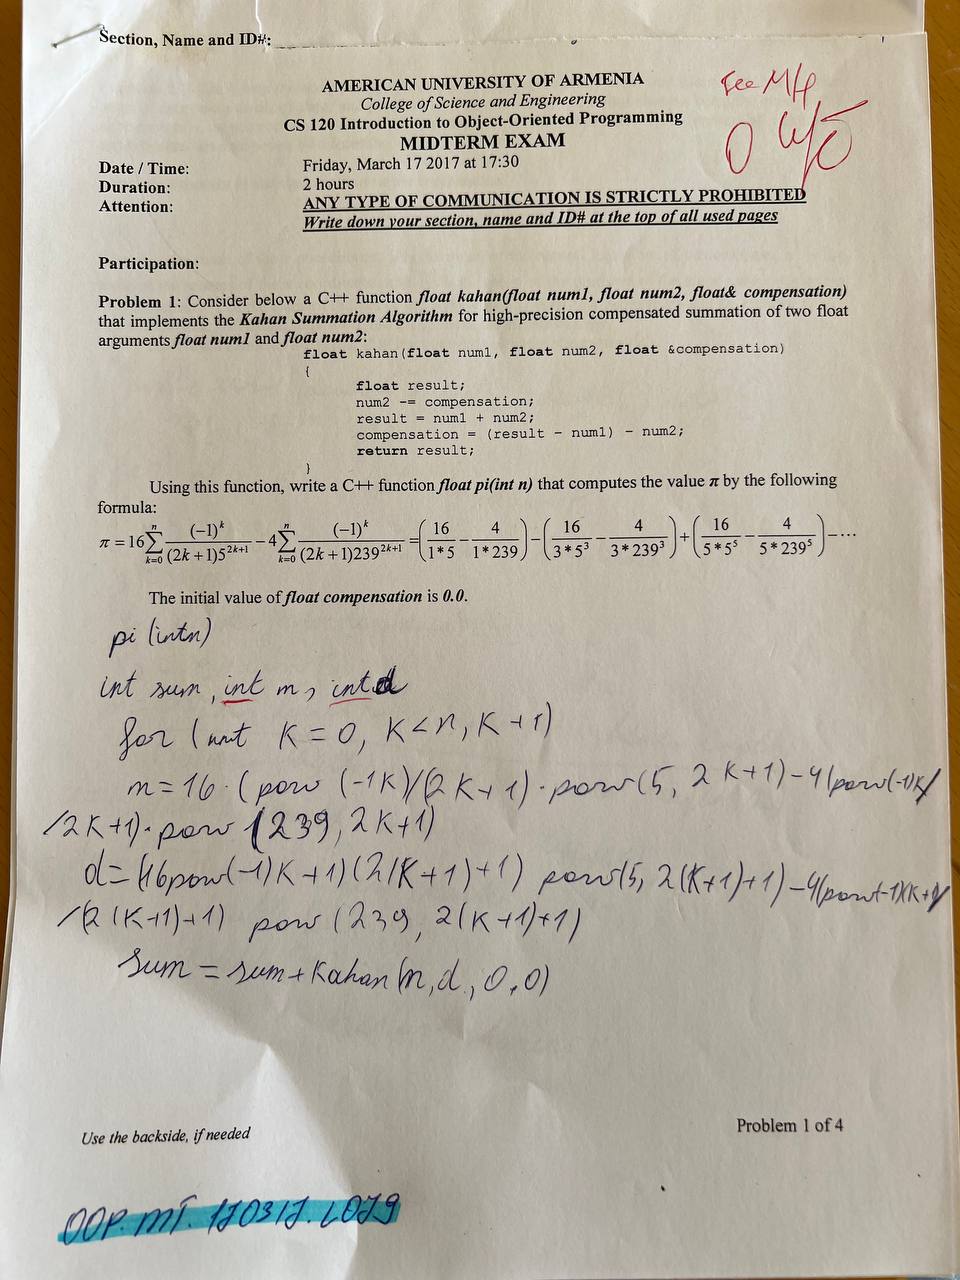 Section, Name and ID#:
AMERICAN UNIVERSITY OF ARMENIA
College of Science and Engineering
CS 120 Introduction to Object-Oriented Programming
MIDTERM EXAM
See MH
0 4/5
Date / Time: Friday, March 17 2017 at 17:30
Duration: 2 hours
Attention: ANY TYPE OF COMMUNICATION IS STRICTLY PROHIBITED
Write down your section, name and ID# at the top of all used pages
Participation:
Problem 1: Consider below a C++ function float kahan(float num1, float num2, float& compensation)
that implements the Kahan Summation Algorithm for high-precision compensated summation of two float
arguments float num1 and float num2:
float kahan(float num1, float num2, float &compensation)
{
float result;
num2 -= compensation;
result = num1 + num2;
compensation = (result - num1) - num2;
return result;
}
Using this function, write a C++ function float pi(int n) that computes the value π by the following
formula:
π = 16 ∑_{k=0}^{n} (-1)^k / ((2k+1)5^{2k+1}) - 4 ∑_{k=0}^{n} (-1)^k / ((2k+1)239^{2k+1}) = (16/(1*5) - 4/(1*239)) - (16/(3*5^3) - 4/(3*239^3)) + (16/(5*5^5) - 4/(5*239^5)) - ···
The initial value of float compensation is 0.0.
pi (int n)
int sum, int m, int d
for (int K = 0, K < n, K + 1)
m = 16 · (pow (-1K)/(2K+1) · pow(5, 2K+1) - 4(pow(-1)K/
/2K+1) · pow (239, 2K+1)
d = (16pow(-1)K+1)(2(K+1)+1) pow(5, 2(K+1)+1) - 4(pow(-1)(K+1)/
/(2(K+1)+1) pow (239, 2(K+1)+1)
sum = sum + Kahan (m, d, 0,0)
Use the backside, if needed
Problem 1 of 4
OOP. MT. 170317. L079